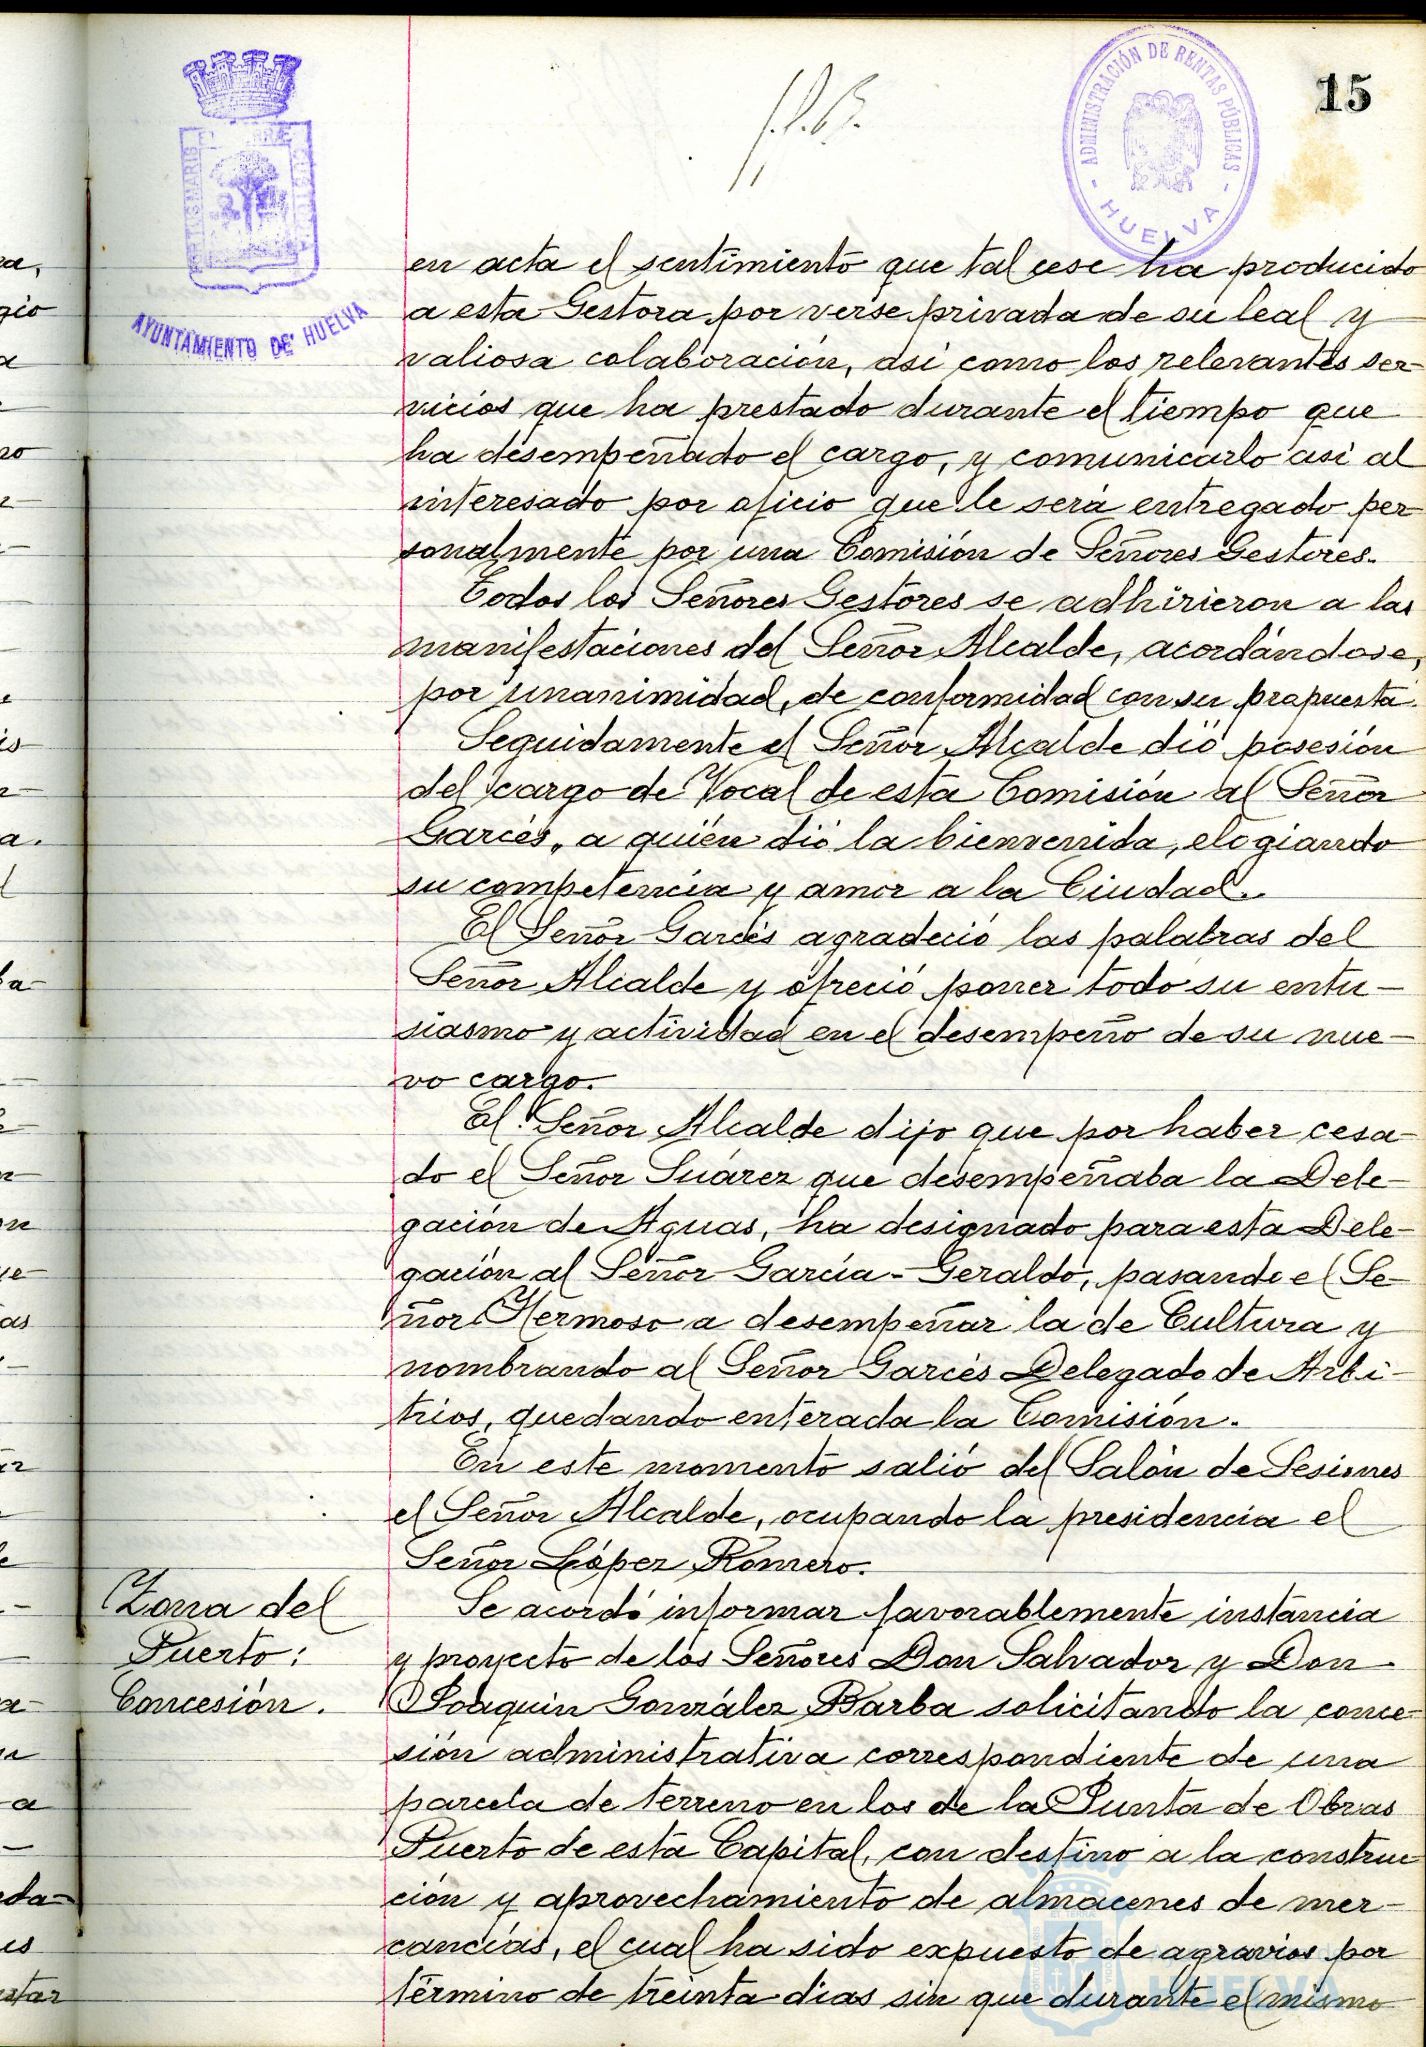 15
ADMINISTRACIÓN DE RENTAS PÚBLICAS
- HUELVA -
AYUNTAMIENTO DE HUELVA
en acta el sentimiento que tal cese ha producido
a esta Gestora por verse privada de su leal y
valiosa colaboración, asi como los relevantes ser-
vicios que ha prestado durante el tiempo que
ha desempeñado el cargo, y comunicarlo asi al
interesado por oficio que le será entregado per-
sonalmente por una Comisión de Señores Gestores.
Todos los Señores Gestores se adhirieron a las
manifestaciones del Señor Alcalde, acordándose,
por unanimidad, de conformidad con su propuesta.
Seguidamente el Señor Alcalde dió posesión
del cargo de Vocal de esta Comisión al Señor
Garcés, a quién dió la bienvenida, elogiando
su competencia y amor a la Ciudad.
El Señor Garcés agradeció las palabras del
Señor Alcalde y ofreció poner todo su entu-
siasmo y actividad en el desempeño de su nue-
vo cargo.
El Señor Alcalde dijo que por haber cesa-
do el Señor Suárez que desempeñaba la Dele-
gación de Aguas, ha designado para esta Dele-
gación al Señor García-Geraldo, pasando el Se-
ñor Hermoso a desempeñar la de Cultura y
nombrando al Señor Garcés Delegado de Arbi-
trios, quedando enterada la Comisión.
En este momento salió del Salón de Sesiones
el Señor Alcalde, ocupando la presidencia el
Señor López Romero.
Zona del
Puerto:
Concesión.
Se acordó informar favorablemente instancia
y proyecto de los Señores Don Salvador y Don
Joaquin González Barba solicitando la conce-
sión administrativa correspondiente de una
parcela de terreno en los de la Junta de Obras
Puerto de esta Capital, con destino a la construc-
ción y aprovechamiento de almacenes de mer-
cancías, el cual ha sido expuesto de agravios por
término de treinta dias sin que durante el mismo
HUELVA